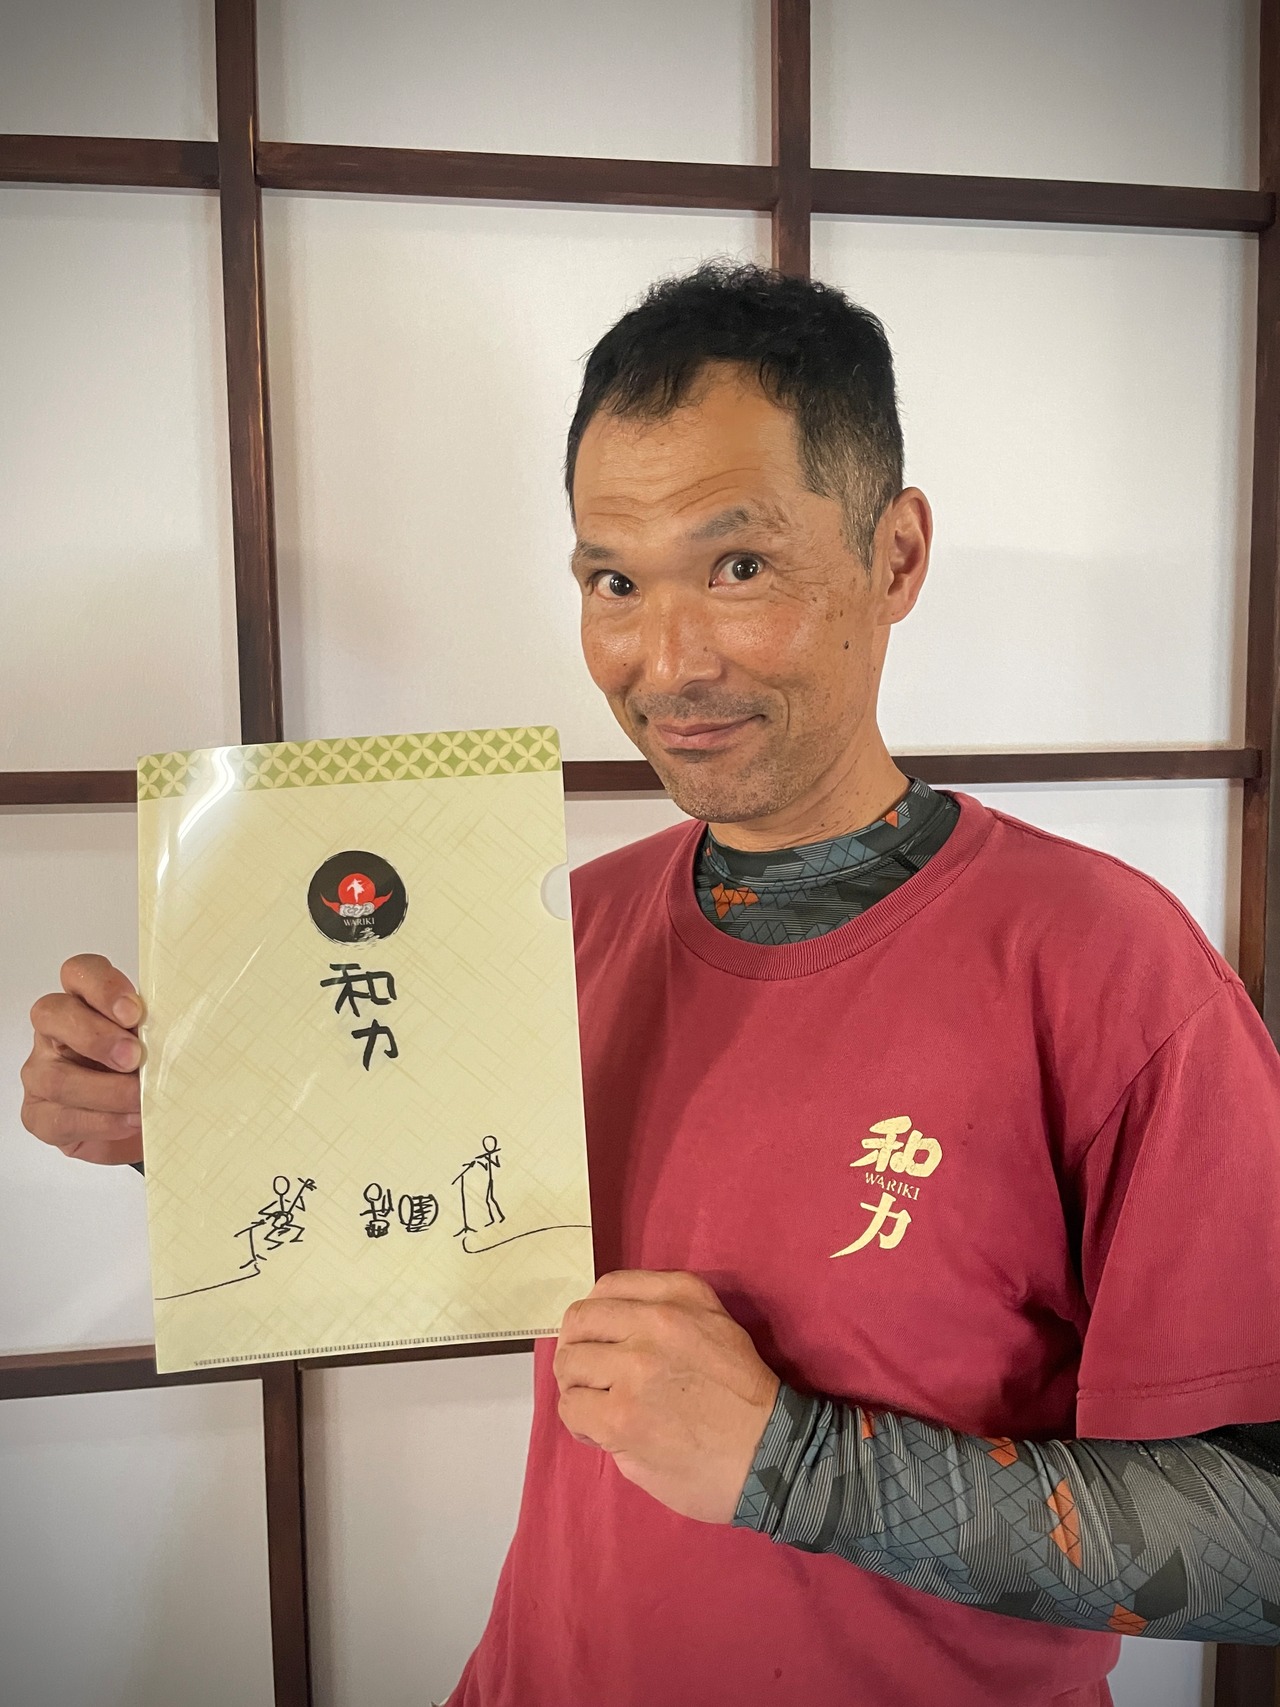 WARIKI
和
力
和
WARIKI
力